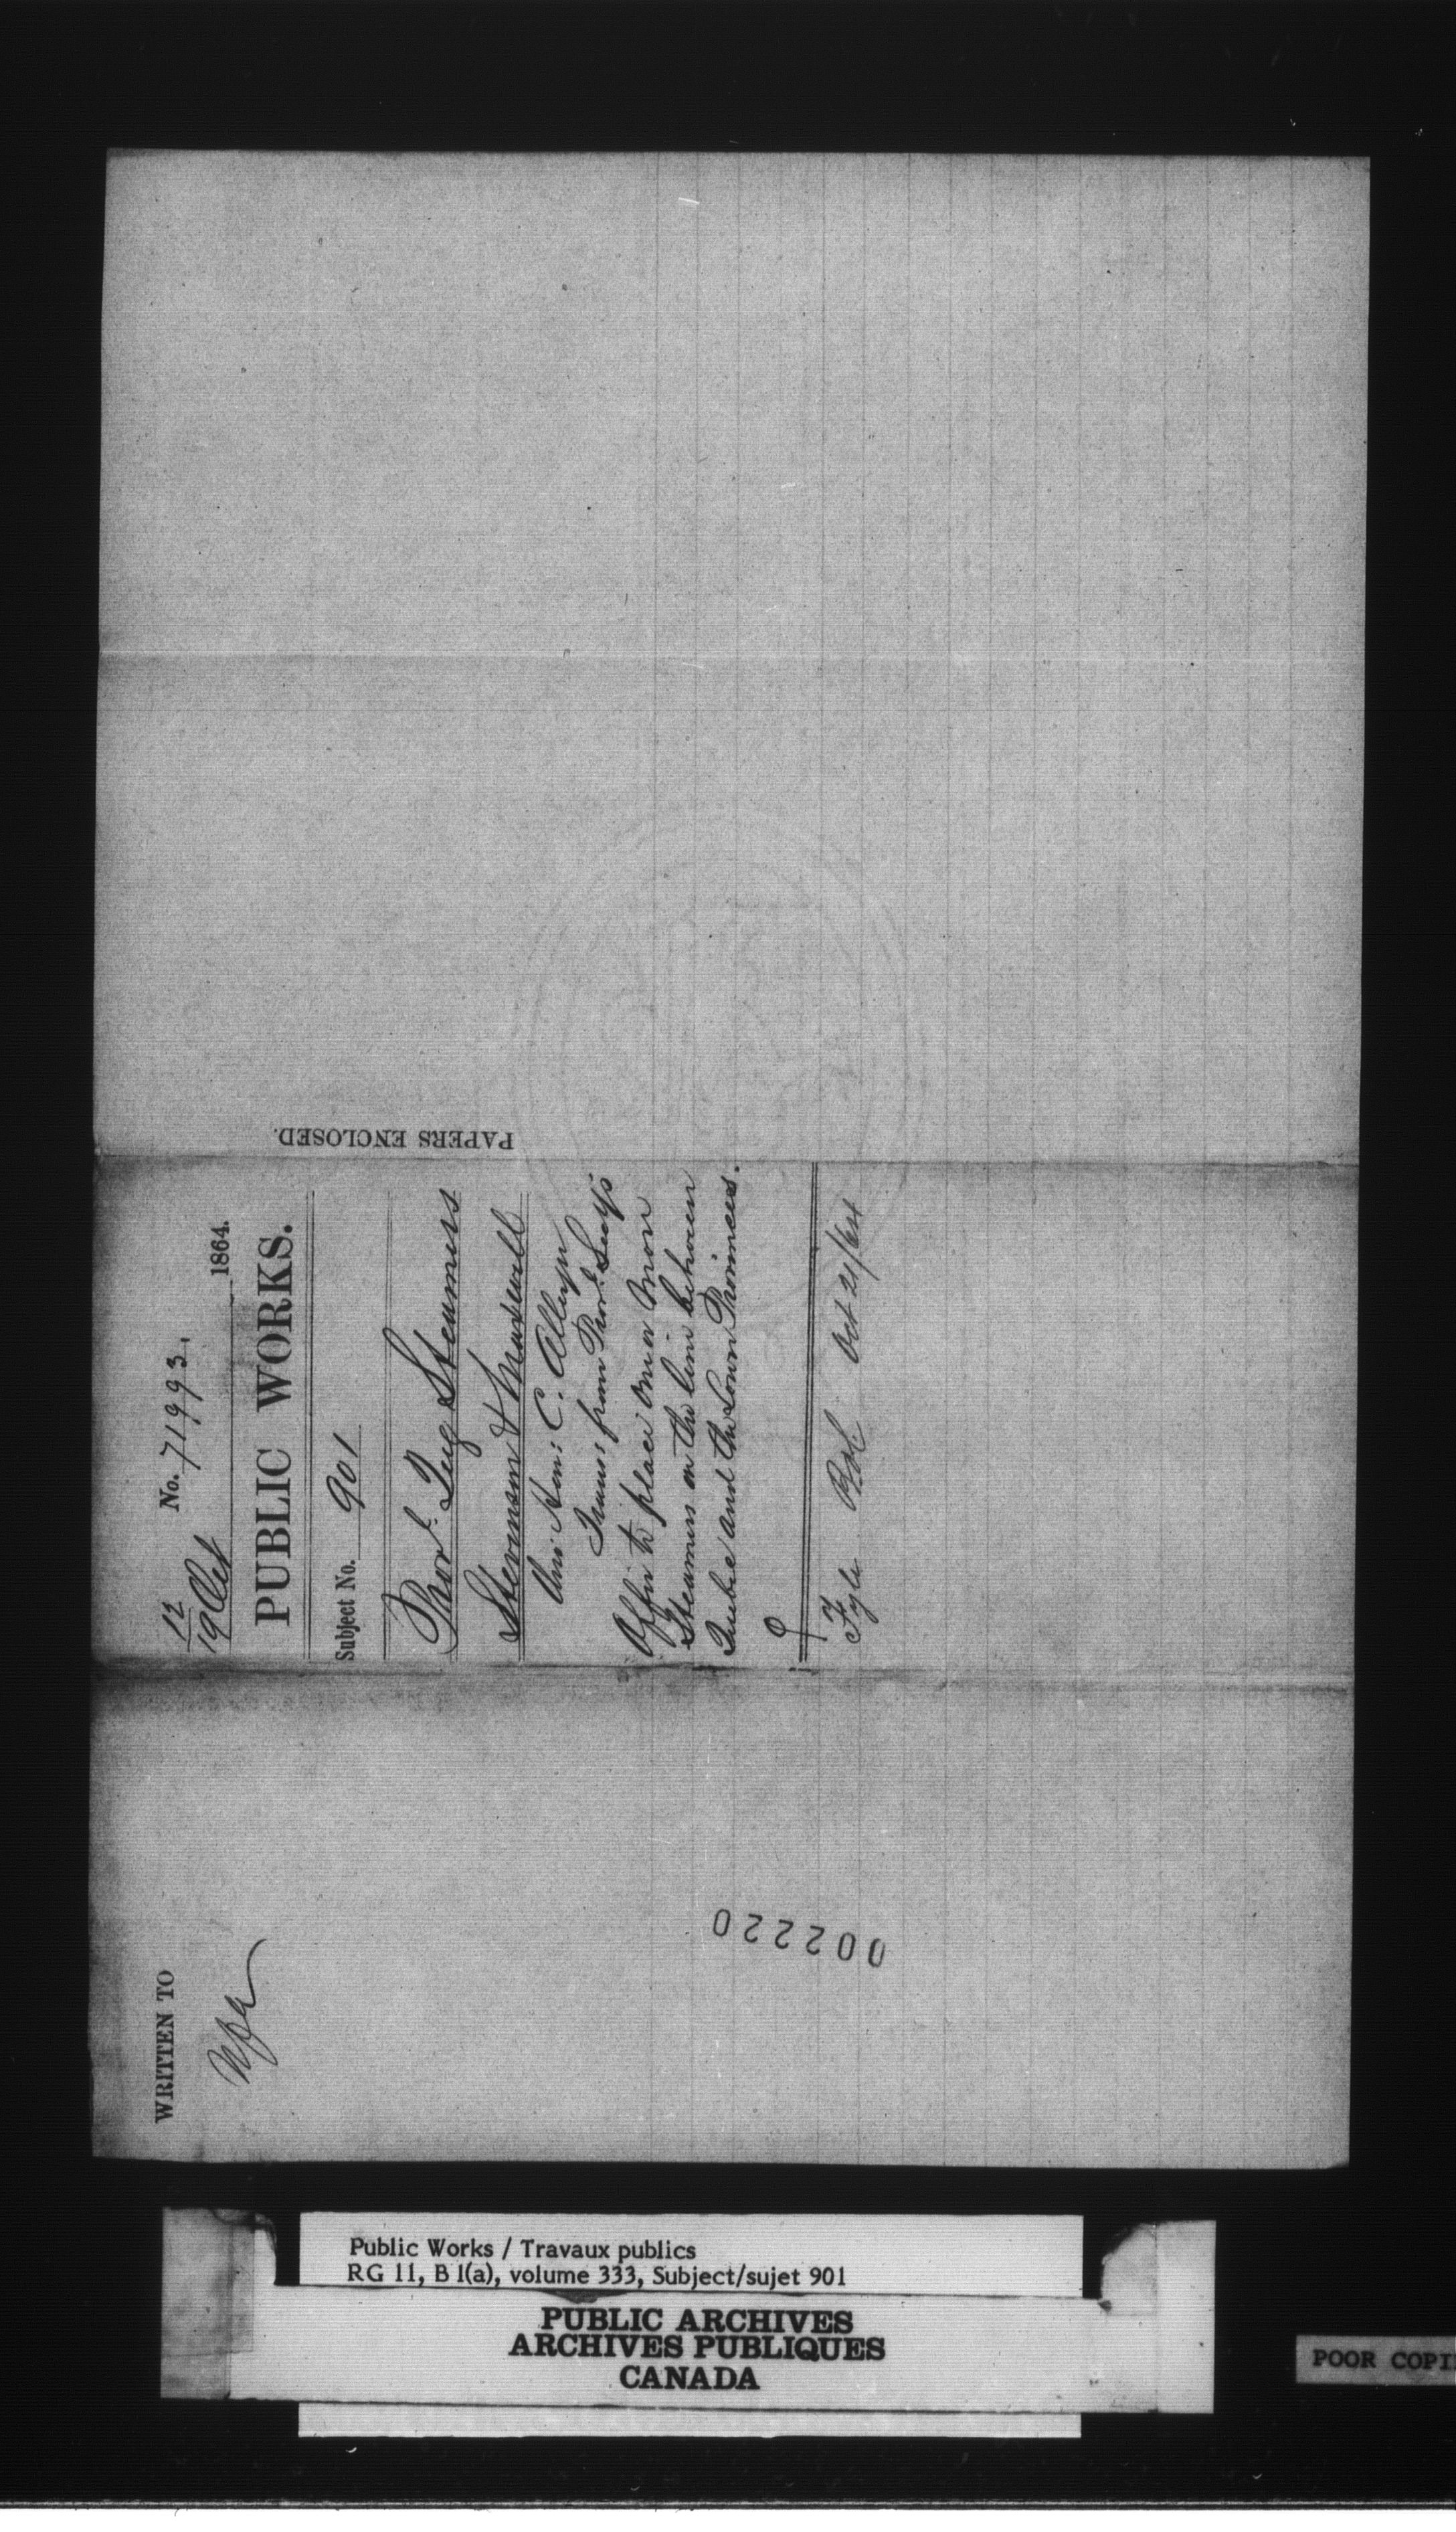 12
19 Oct
No. 71993.
1864.
PUBLIC WORKS.
Subject No. 901
Provl. Tug Steamers
Stevenson & Maxwell
C. Alleyn
Trans: from Provl. Secy's
Offer to place one or more
Steamers on the line between
Quebec and the Lower Provinces.
Fyle Oct 21/64
PAPERS ENCLOSED.
WRITTEN TO
002220
Public Works / Travaux publics
RG 11, B 1(a), volume 333, Subject/sujet 901
PUBLIC ARCHIVES
ARCHIVES PUBLIQUES
CANADA
POOR COPI